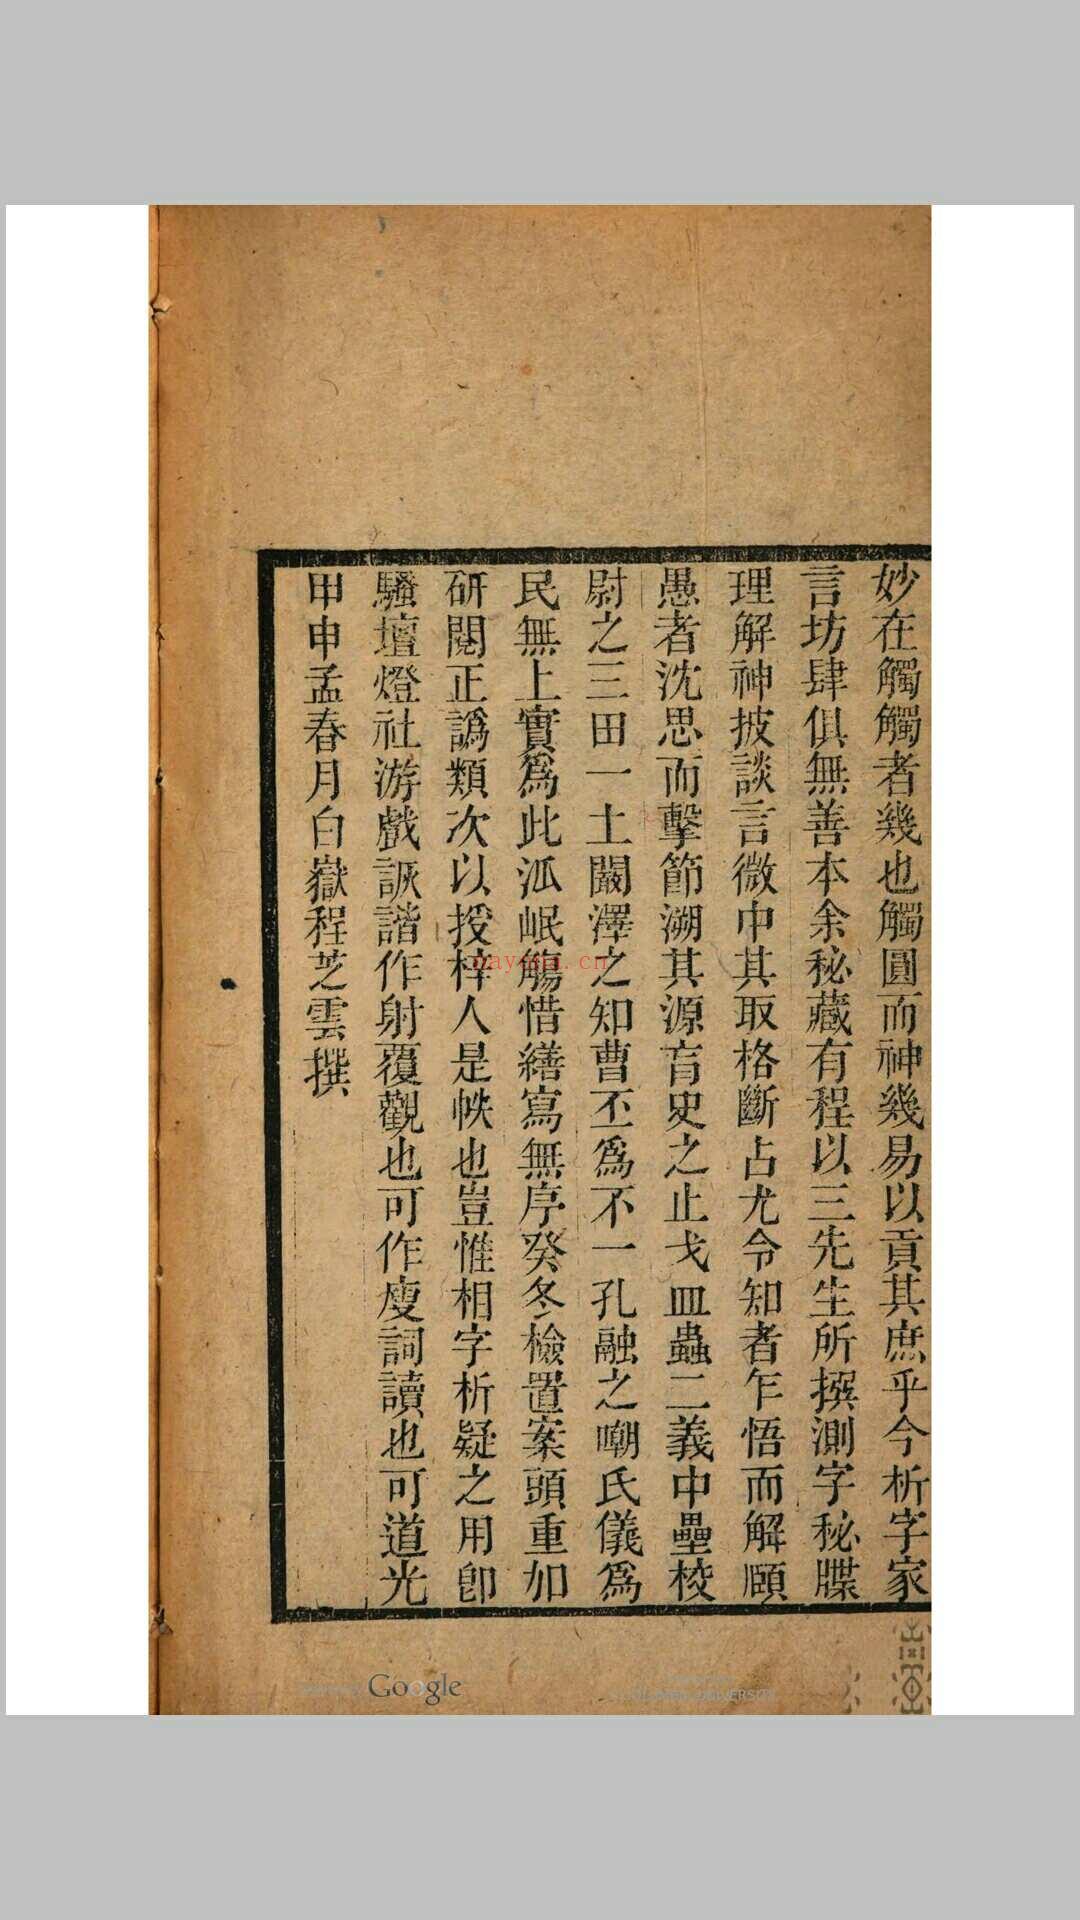 妙在觸觸者幾也觸圓而神幾易以貢其庶乎今析字家
言坊肆俱無善本余秘藏有程以三先生所撰測字秘牒
理解神披談言微中其取格斷占尤令知者乍悟而解頤
愚者沈思而擊節溯其源肓史之止戈皿蟲二義中壘校
尉之三田一土闞澤之知曹丕爲不一孔融之嘲氏儀爲
民無上實爲此泒岷觴惜繕寫無序癸冬檢置案頭重加
研閱正譌類次以授梓人是帙也豈惟相字析疑之用卽
騷壇燈社游戲詼諧作射覆觀也可作廋詞讀也可道光
甲申孟春月白嶽程芝雲撰
Google